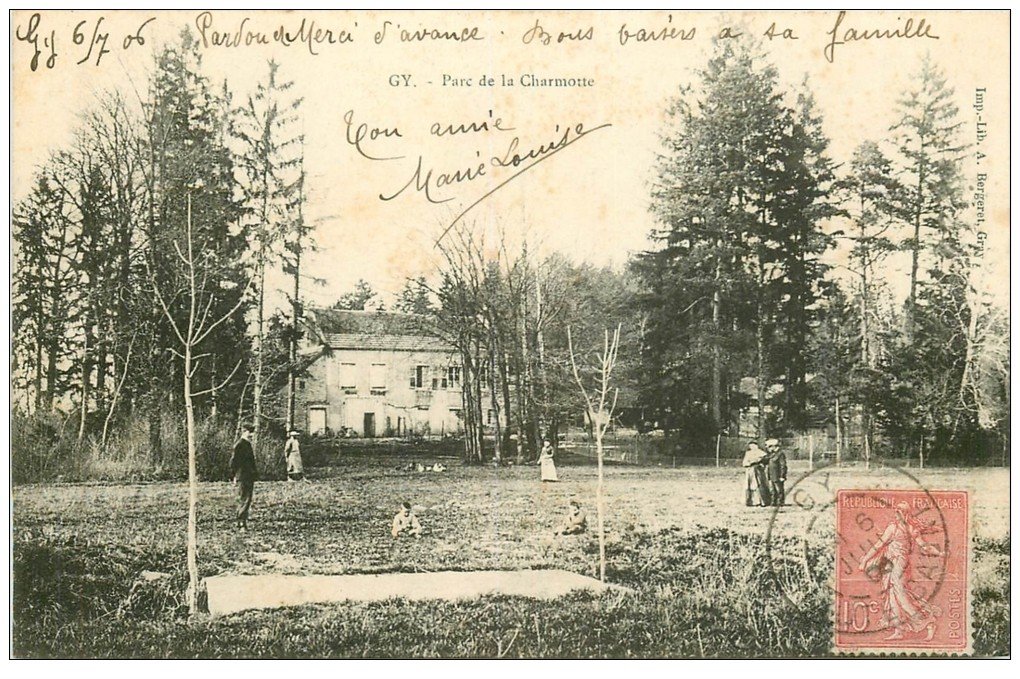 Gy 6/7 06 Pardon et Merci d'avance. Bons baisers à sa famille
GY. - Parc de la Charmotte
Ton amie
Marie Louise
Imp.-Lib. A. Bergeret, Gray
GY
6 JUIL
06
RÉPUBLIQUE FRANÇAISE
10c
POSTES